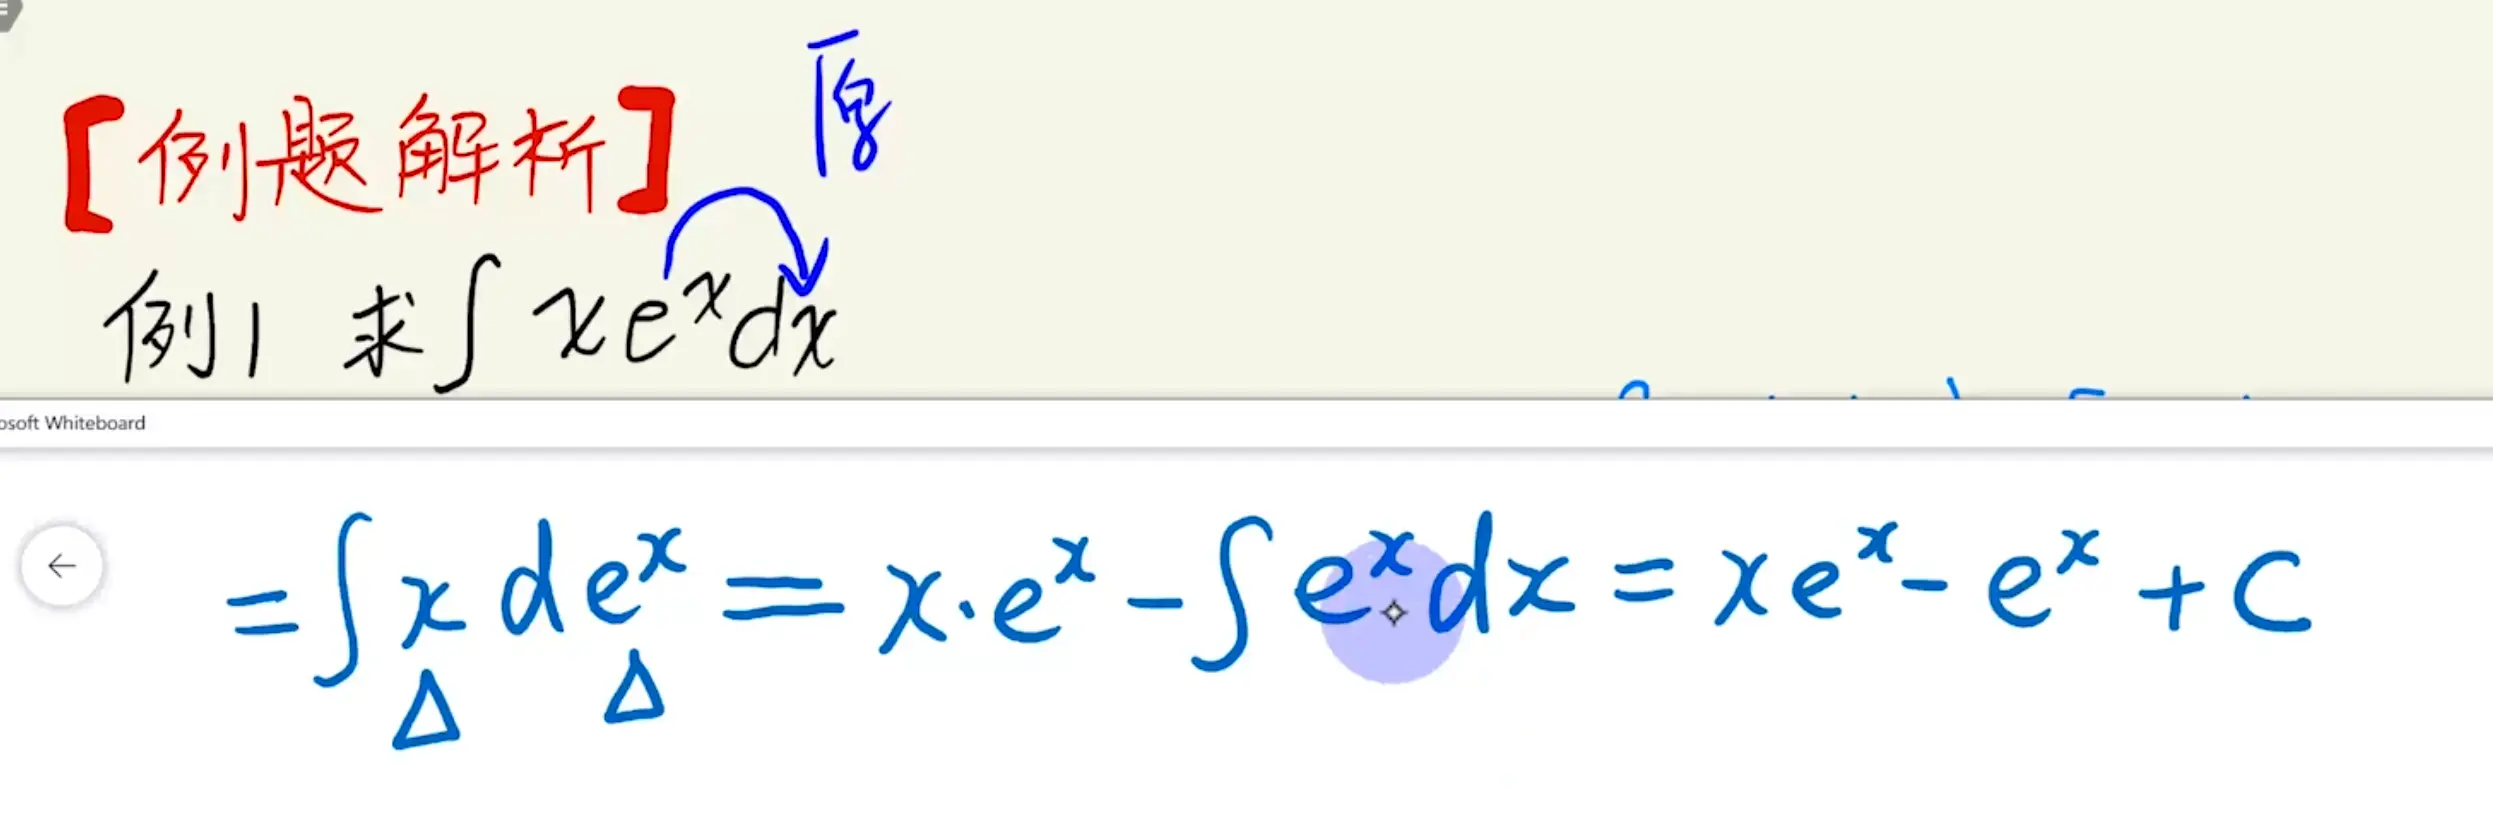 原
【例题解析】
例1 求∫xeˣdx
osoft Whiteboard
=∫x deˣ = x·eˣ-∫eˣdx = xeˣ-eˣ+C
Δ Δ